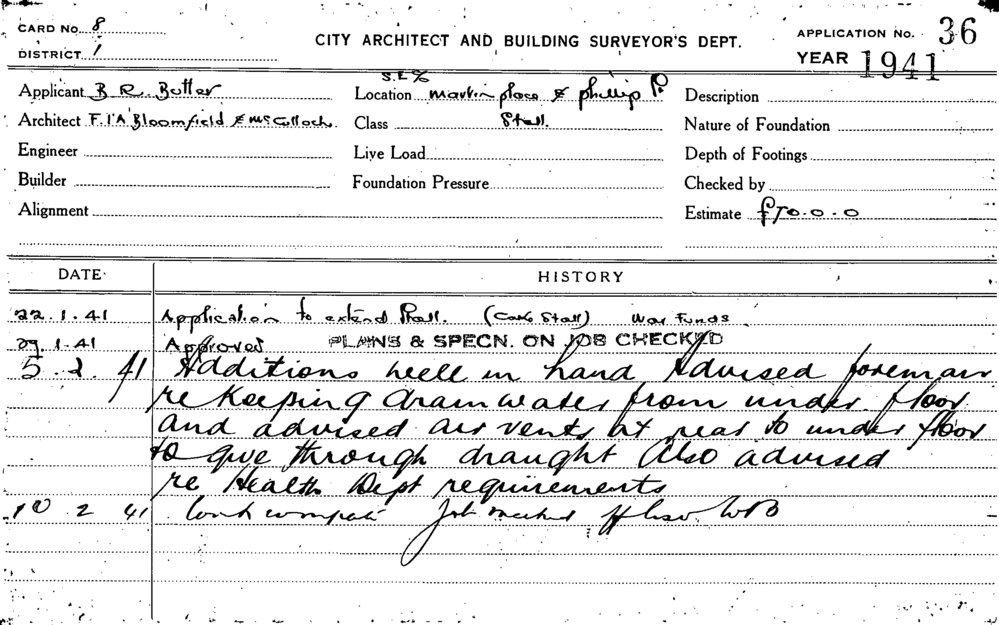 CARD No. 8
DISTRICT 1
CITY ARCHITECT AND BUILDING SURVEYOR'S DEPT.
APPLICATION No. 36
YEAR 1941
Applicant B R. Butler
Architect F.I'A Bloomfield & McCulloch
Engineer
Builder
Alignment
S.E %
Location martin place & phillip
Class Stall.
Live Load
Foundation Pressure
Description
Nature of Foundation
Depth of Footings
Checked by
Estimate £70.0.0
DATE HISTORY
22.1.41 Application to extend Stall. (Cake Stall) War Funds
29.1.41 Approved PLANS & SPECN. ON JOB CHECKED
5.2.41 Additions well in hand Advised foreman
re keeping drain water from under floor
and advised air vents at rear to under floor
to give through draught Also advised
re Health Dept requirements
10 2 41 Work complete Job marked